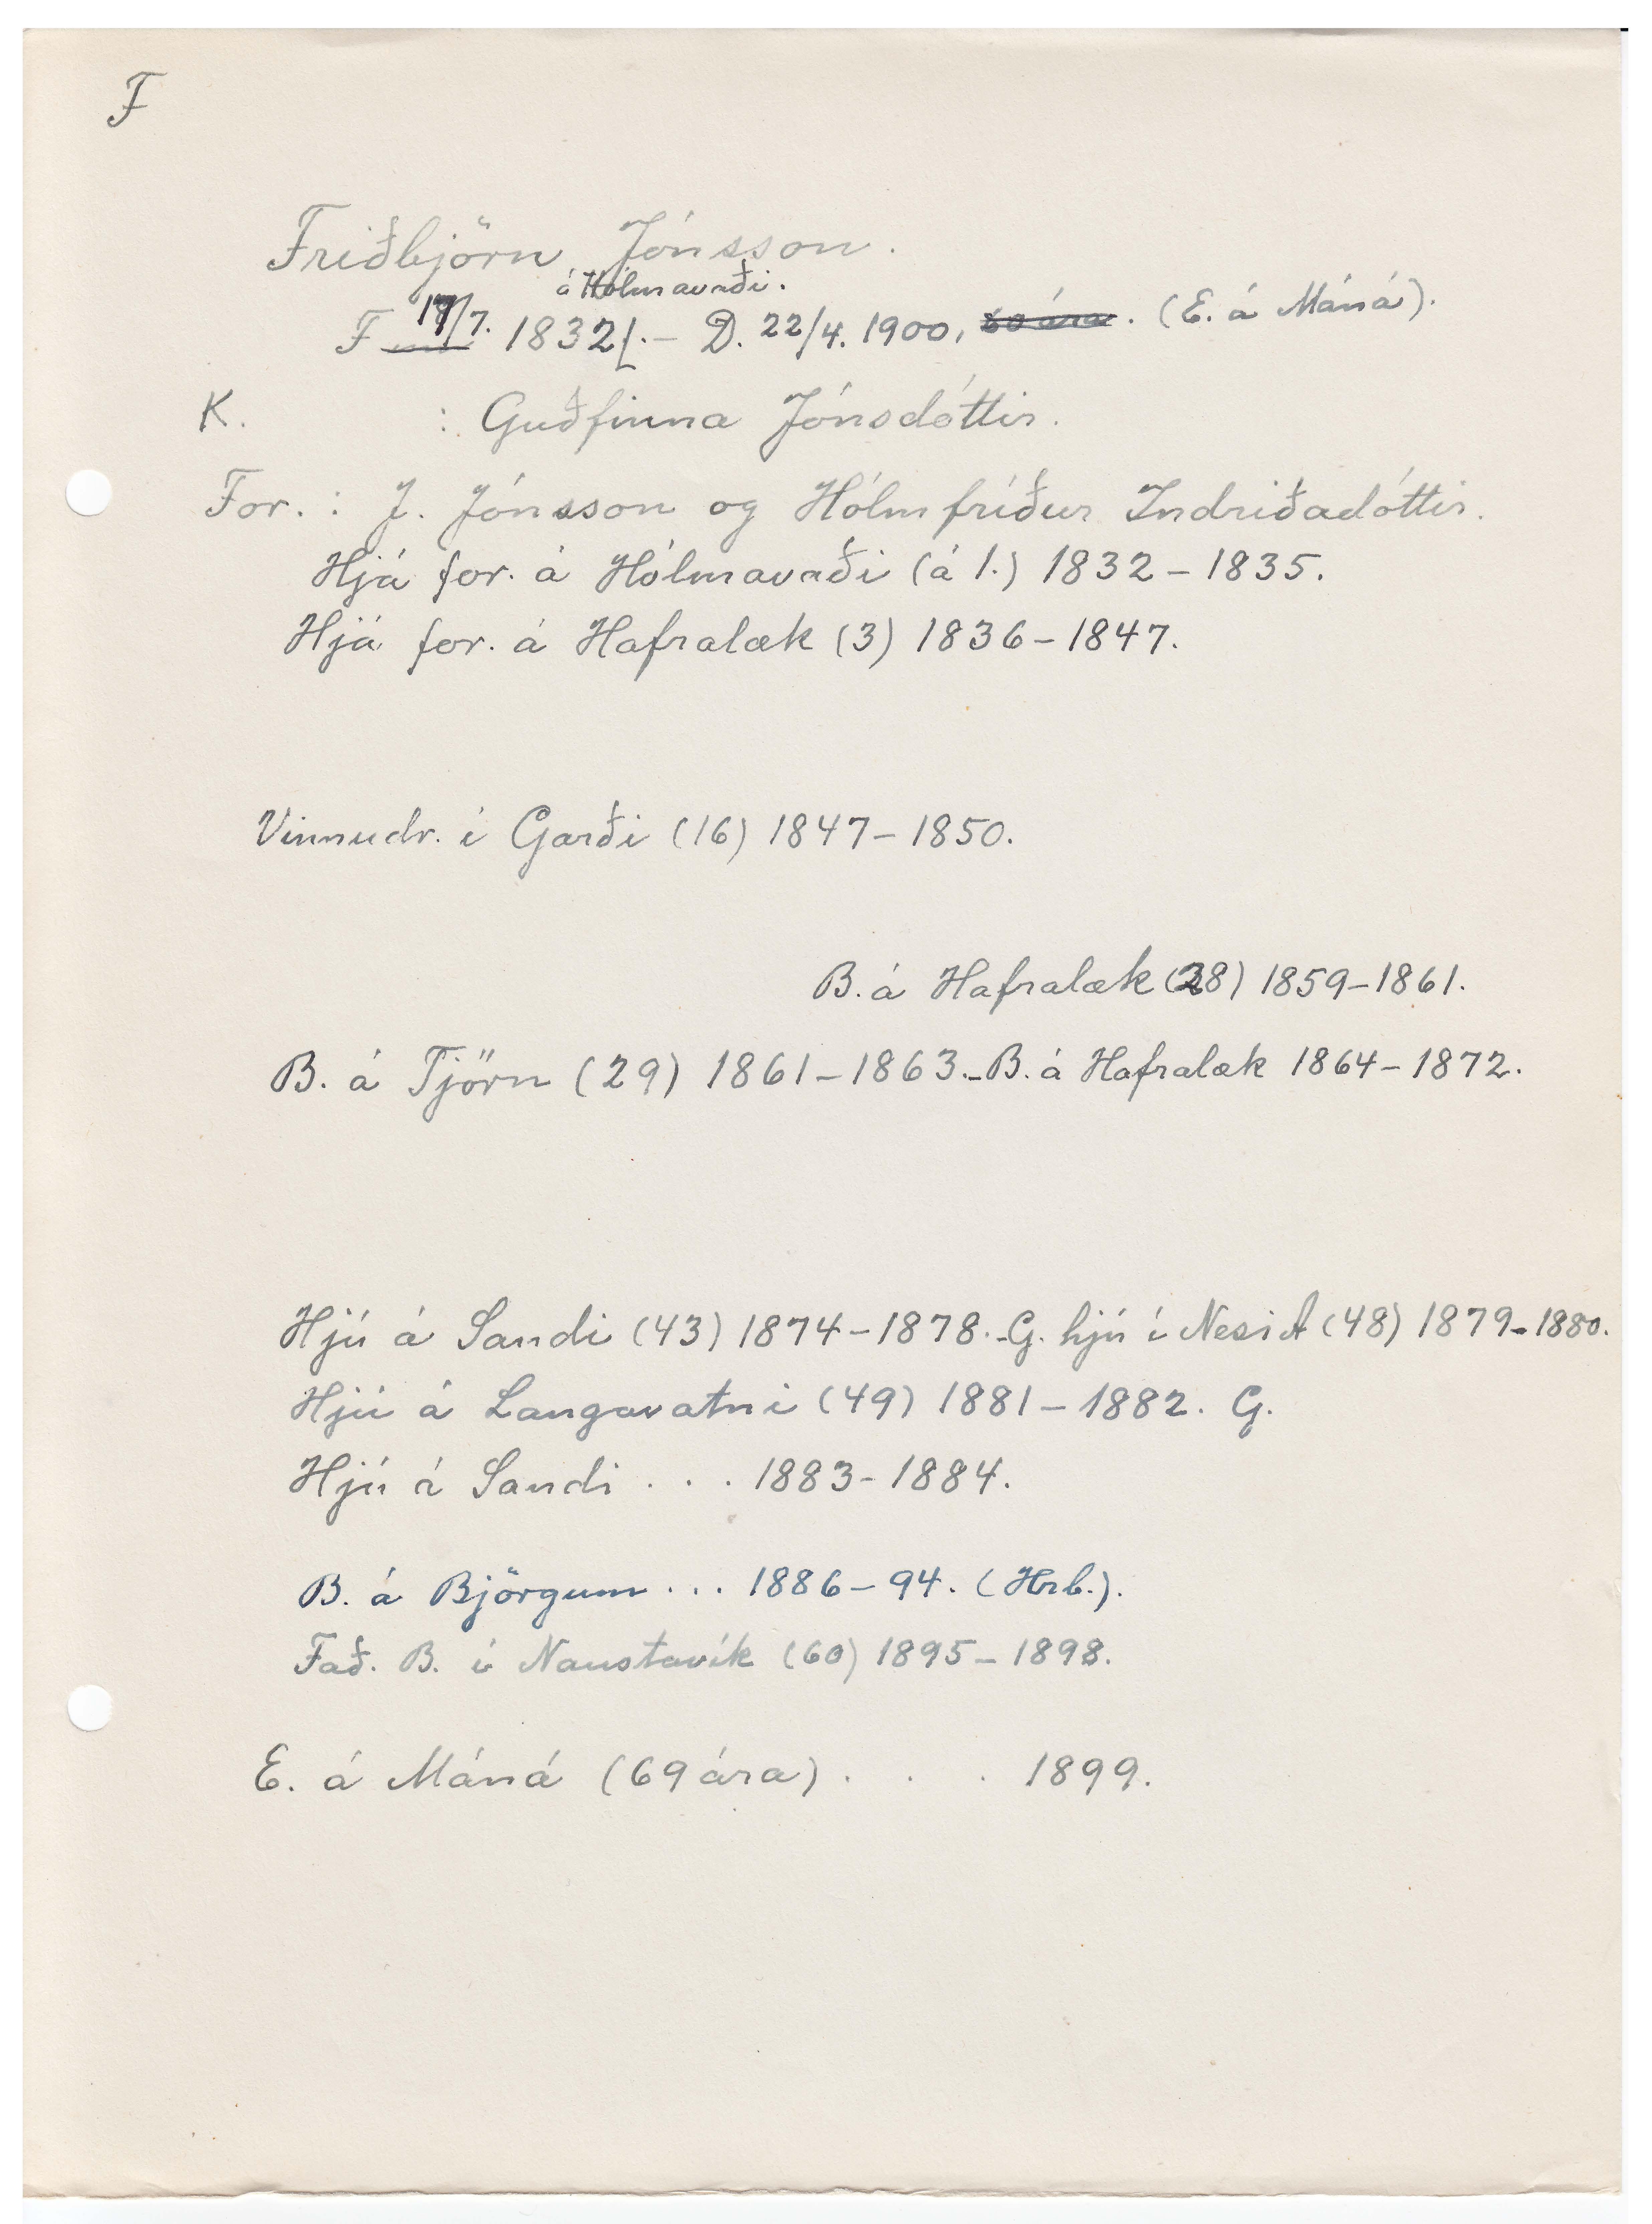 F
Friðbjörn Jónsson.
á Hólmavaði.
F 17/7. 1832. – D. 22/4. 1900, . (E. á Máná).
K. : Guðfinna Jónsdóttir.
For. : J. Jónsson og Hólmfríður Indriðadóttir.
Hjá for. á Hólmavaði (á 1.) 1832 – 1835.
Hjá for. á Hafralæk (3) 1836 – 1847.
Vinnudr. í Garði (16) 1847 – 1850.
B. á Hafralæk (28) 1859 – 1861.
B. á Tjörn (29) 1861 – 1863. – B. á Hafralæk 1864 – 1872.
Hjú á Sandi (43) 1874 – 1878. – G. hjú í Nesi A (48) 1879 – 1880.
Hjú á Langavatni (49) 1881 – 1882. G.
Hjú á Sandi . . . 1883 – 1884.
B. á Björgum . . . 1886 – 94. (Hrb.).
Fað. B. í Naustavík (60) 1895 – 1898.
E. á Máná (69 ára) . . . 1899.